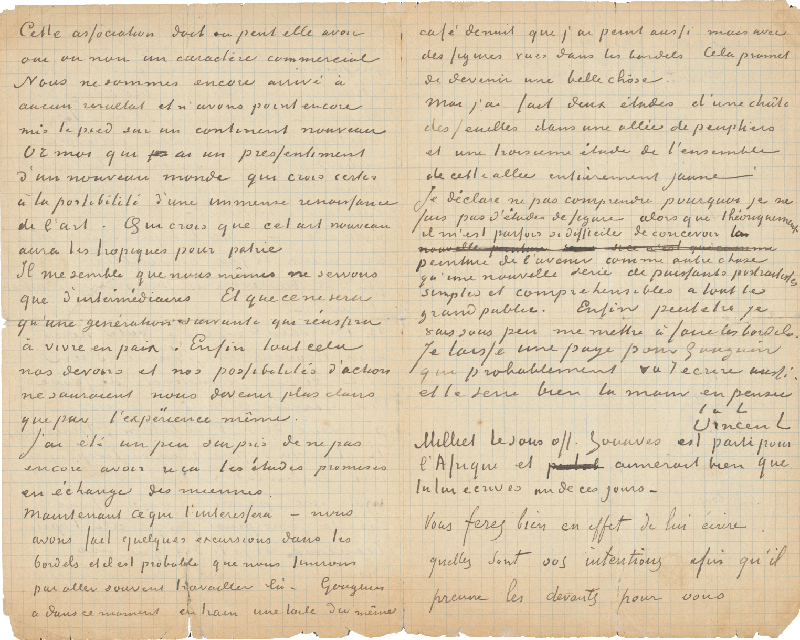 Cette association doit ou peut elle avoir
oui ou non un caractère commercial
Nous ne sommes encore arrivé à
aucun resultat et n'avons point encore
mis le pied sur un continent nouveau
Or moi qui ai un pressentiment
d'un nouveau monde qui crois certes
à la possibilité d'une immense renaissance
de l'art. Qui crois que cet art nouveau
aura les tropiques pour patrie
Il me semble que nous mêmes ne servons
que d'intermédiaires Et que ce ne sera
qu'une génération suivante qui réussira
à vivre en paix. Enfin tout cela
nos devoirs et nos possibilités d'action
ne sauraient nous devenir plus clairs
que par l'expérience même.
J'ai été un peu surpris de ne pas
encore avoir reçu les études promises
en échange des miennes.
Maintenant ce qui t'interessera – nous
avons fait quelques excursions dans les
bordels et il est probable que nous finirons
par aller souvent travailler là. Gauguin
a dans ce moment en train une toile du même
café de nuit que j'ai peint aussi mais avec
des figures vues dans les bordels Cela promet
de devenir une belle chose.
Moi j'ai fait deux études d'une chûte
des feuilles dans une allée de peupliers
et une troisieme étude de l'ensemble
de cette allee entièrement jaune
Je déclare ne pas comprendre pourquoi je ne
fais pas d'études de figure alors que théoriquement
il m'est parfois si difficile de concevoir la
nouvelle peinture
peinture de l'avenir comme autre chose
qu'une nouvelle serie de puissants portraitistes
simples et comprehensibles à tout le
grand public. Enfin peutetre je
vais sous peu me mettre à faire les bordels.
Je laisse une page pour Gauguin
qui probablement va t'ecrire aussi.
et te serre bien la main en pensée
t. à t.
Vincent
Milliet le sous off. Zouaves est parti pour
l'Afrique et aimerait bien que
tu lui ecrives un de ces jours –
Vous ferez bien en effet de lui écrire
quelles sont vos intentions afin qu'il
prenne les devants pour vous